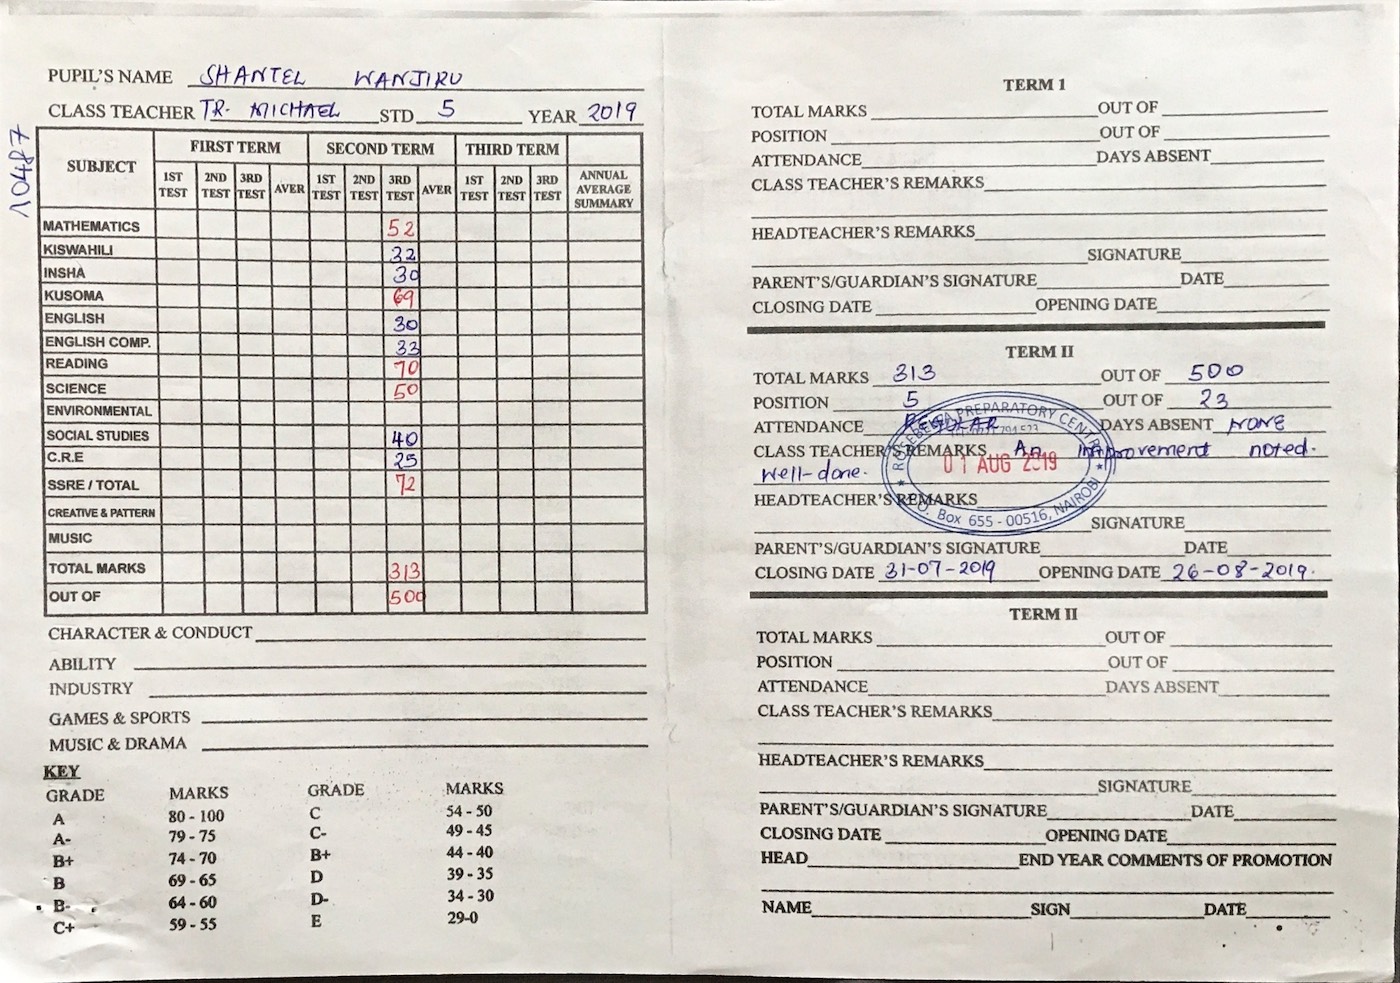 PUPIL'S NAME SHANTEL WANJIRU
CLASS TEACHER TR. MICHAEL STD 5 YEAR 2019
10487
SUBJECT FIRST TERM SECOND TERM THIRD TERM
1ST TEST 2ND TEST 3RD TEST AVER 1ST TEST 2ND TEST 3RD TEST AVER 1ST TEST 2ND TEST 3RD TEST ANNUAL AVERAGE SUMMARY
MATHEMATICS 52
KISWAHILI 32
INSHA 30
KUSOMA 69
ENGLISH 30
ENGLISH COMP. 33
READING 70
SCIENCE 50
ENVIRONMENTAL
SOCIAL STUDIES 40
C.R.E 25
SSRE / TOTAL 72
CREATIVE & PATTERN
MUSIC
TOTAL MARKS 313
OUT OF 500
CHARACTER & CONDUCT
ABILITY
INDUSTRY
GAMES & SPORTS
MUSIC & DRAMA
KEY
GRADE MARKS GRADE MARKS
A 80 - 100 C 54 - 50
A- 79 - 75 C- 49 - 45
B+ 74 - 70 B+ 44 - 40
B 69 - 65 D 39 - 35
B- 64 - 60 D- 34 - 30
C+ 59 - 55 E 29-0
TERM 1
TOTAL MARKS OUT OF
POSITION OUT OF
ATTENDANCE DAYS ABSENT
CLASS TEACHER'S REMARKS
HEADTEACHER'S REMARKS
SIGNATURE
PARENT'S/GUARDIAN'S SIGNATURE DATE
CLOSING DATE OPENING DATE
TERM II
TOTAL MARKS 313 OUT OF 500
POSITION 5 OUT OF 23
ATTENDANCE REGULAR DAYS ABSENT NONE
CLASS TEACHER'S REMARKS An improvement noted.
Well-done.
HEADTEACHER'S REMARKS
SIGNATURE
PARENT'S/GUARDIAN'S SIGNATURE DATE
CLOSING DATE 31-07-2019 OPENING DATE 26-08-2019.
PREPARATORY CENTRE
01 AUG 2019
P.O. Box 655 - 00516, NAIROBI
TERM II
TOTAL MARKS OUT OF
POSITION OUT OF
ATTENDANCE DAYS ABSENT
CLASS TEACHER'S REMARKS
HEADTEACHER'S REMARKS
SIGNATURE
PARENT'S/GUARDIAN'S SIGNATURE DATE
CLOSING DATE OPENING DATE
HEAD END YEAR COMMENTS OF PROMOTION
NAME SIGN DATE